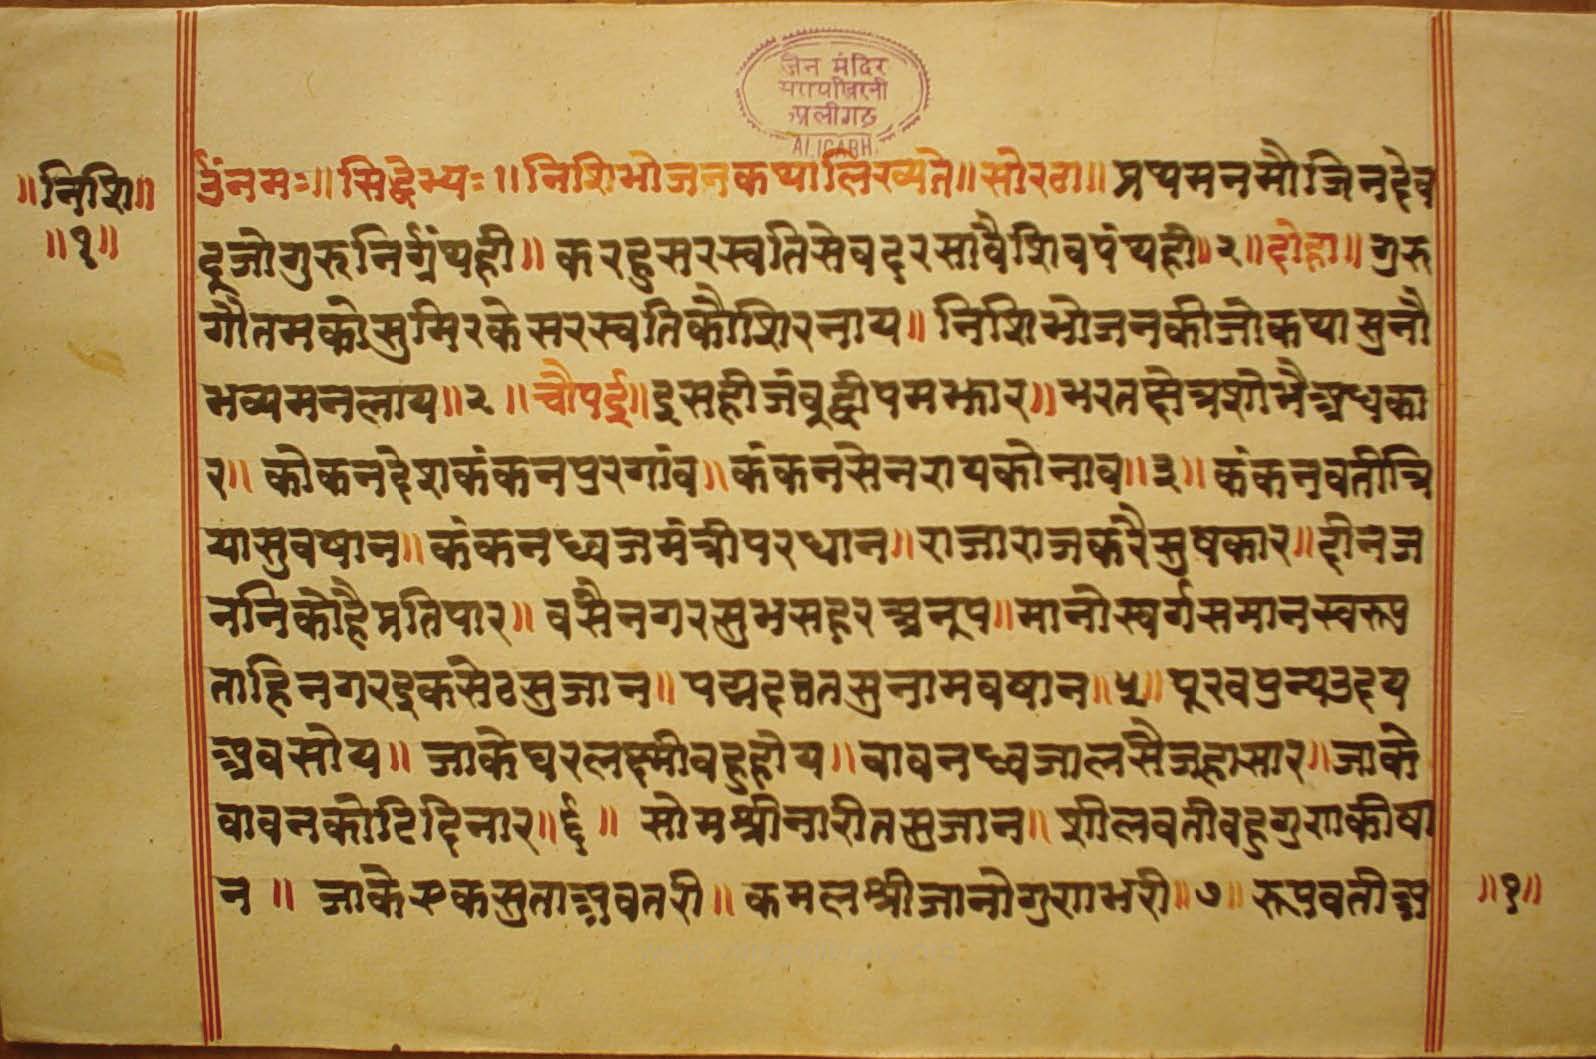 जैन मंदिर
अलीगढ़
ALIGARH
॥निशि॥
॥१॥
ॐनमः॥सिद्धेभ्यः॥निशिभोजनकथालिख्यते॥सोरठा॥प्रथमनमौजिनदेव
दूजोगुरुनिर्ग्रंथही॥करहुसरस्वतिसेवदरसावैशिवपंथही॥१॥दोहा॥गुरु
गौतमकोसुमिरकेसरस्वतिकौशिरनाय॥निशिभोजनकीजोकथासुनौ
भव्यमनलाय॥२॥चौपई॥इसहीजंबुद्वीपमझार॥भरतक्षेत्रशोभैअधिका
र॥कोकनदेशकंकनपुरगांव॥कंकनसेनरायकोनाव॥३॥कंकनवतीत्रि
यासुवषान॥कंकनध्वजमंत्रीपरधान॥राजाराजकरैसुषकार॥दीनज
ननिकोहैप्रतिपार॥वसैनगरसुभसहरअनूप॥मानोस्वर्गसमानस्वरूप
ताहिनगरइकसेठसुजान॥पद्मदत्ततसुनामवषान॥५॥पूरवपुन्यउदय
अवसोय॥जाकेघरलक्ष्मीवहुहोय॥वावनध्वजालसैजूहासार॥जाके
वावनकोटिदिनार॥६॥सोमश्रीनारीतसुजान॥शीलवतीवहुगुणकीषा
न॥जाकेएकसुताअवतरी॥कमलश्रीजानोगुणभरी॥७॥रूपवतीअ
॥१॥